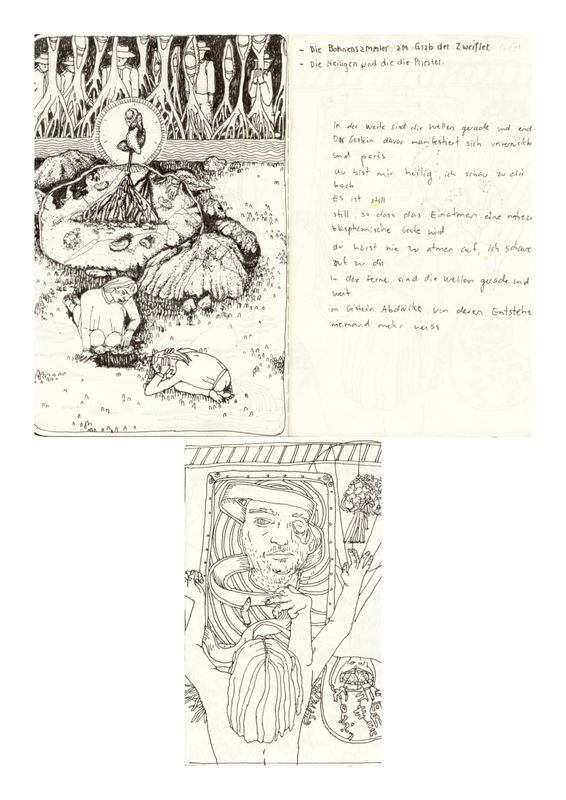 - Die Bohnensammler am Grab der Zweifler
- Die Heiligen und die die Priester.
In der Weite sind die Wellen gerade und
Das Gestein davor manifestiert sich
und porös
du bist mir heilig, ich schau zu dir
hoch
Es ist still
still, so dass das Einatmen eine nahezu
blasphemische Geste wird
du hörst nie zu atmen auf, ich schaue
auf zu dir
In der Ferne sind die Wellen gerade und
weit
im Gstein Abdrücke von deren Entstehen
niemand mehr weiss